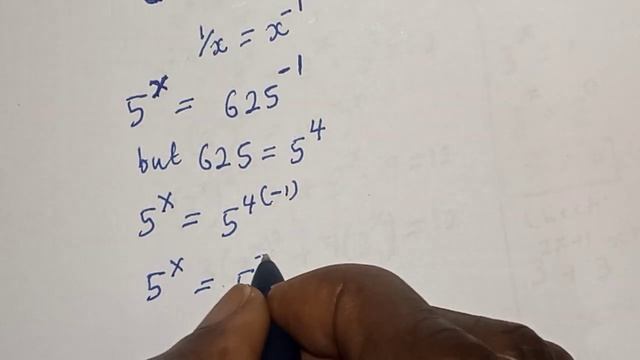 1/x = x⁻¹
5ˣ = 625⁻¹
but 625 = 5⁴
5ˣ = 5⁴⁽⁻¹⁾
5ˣ = 5⁻